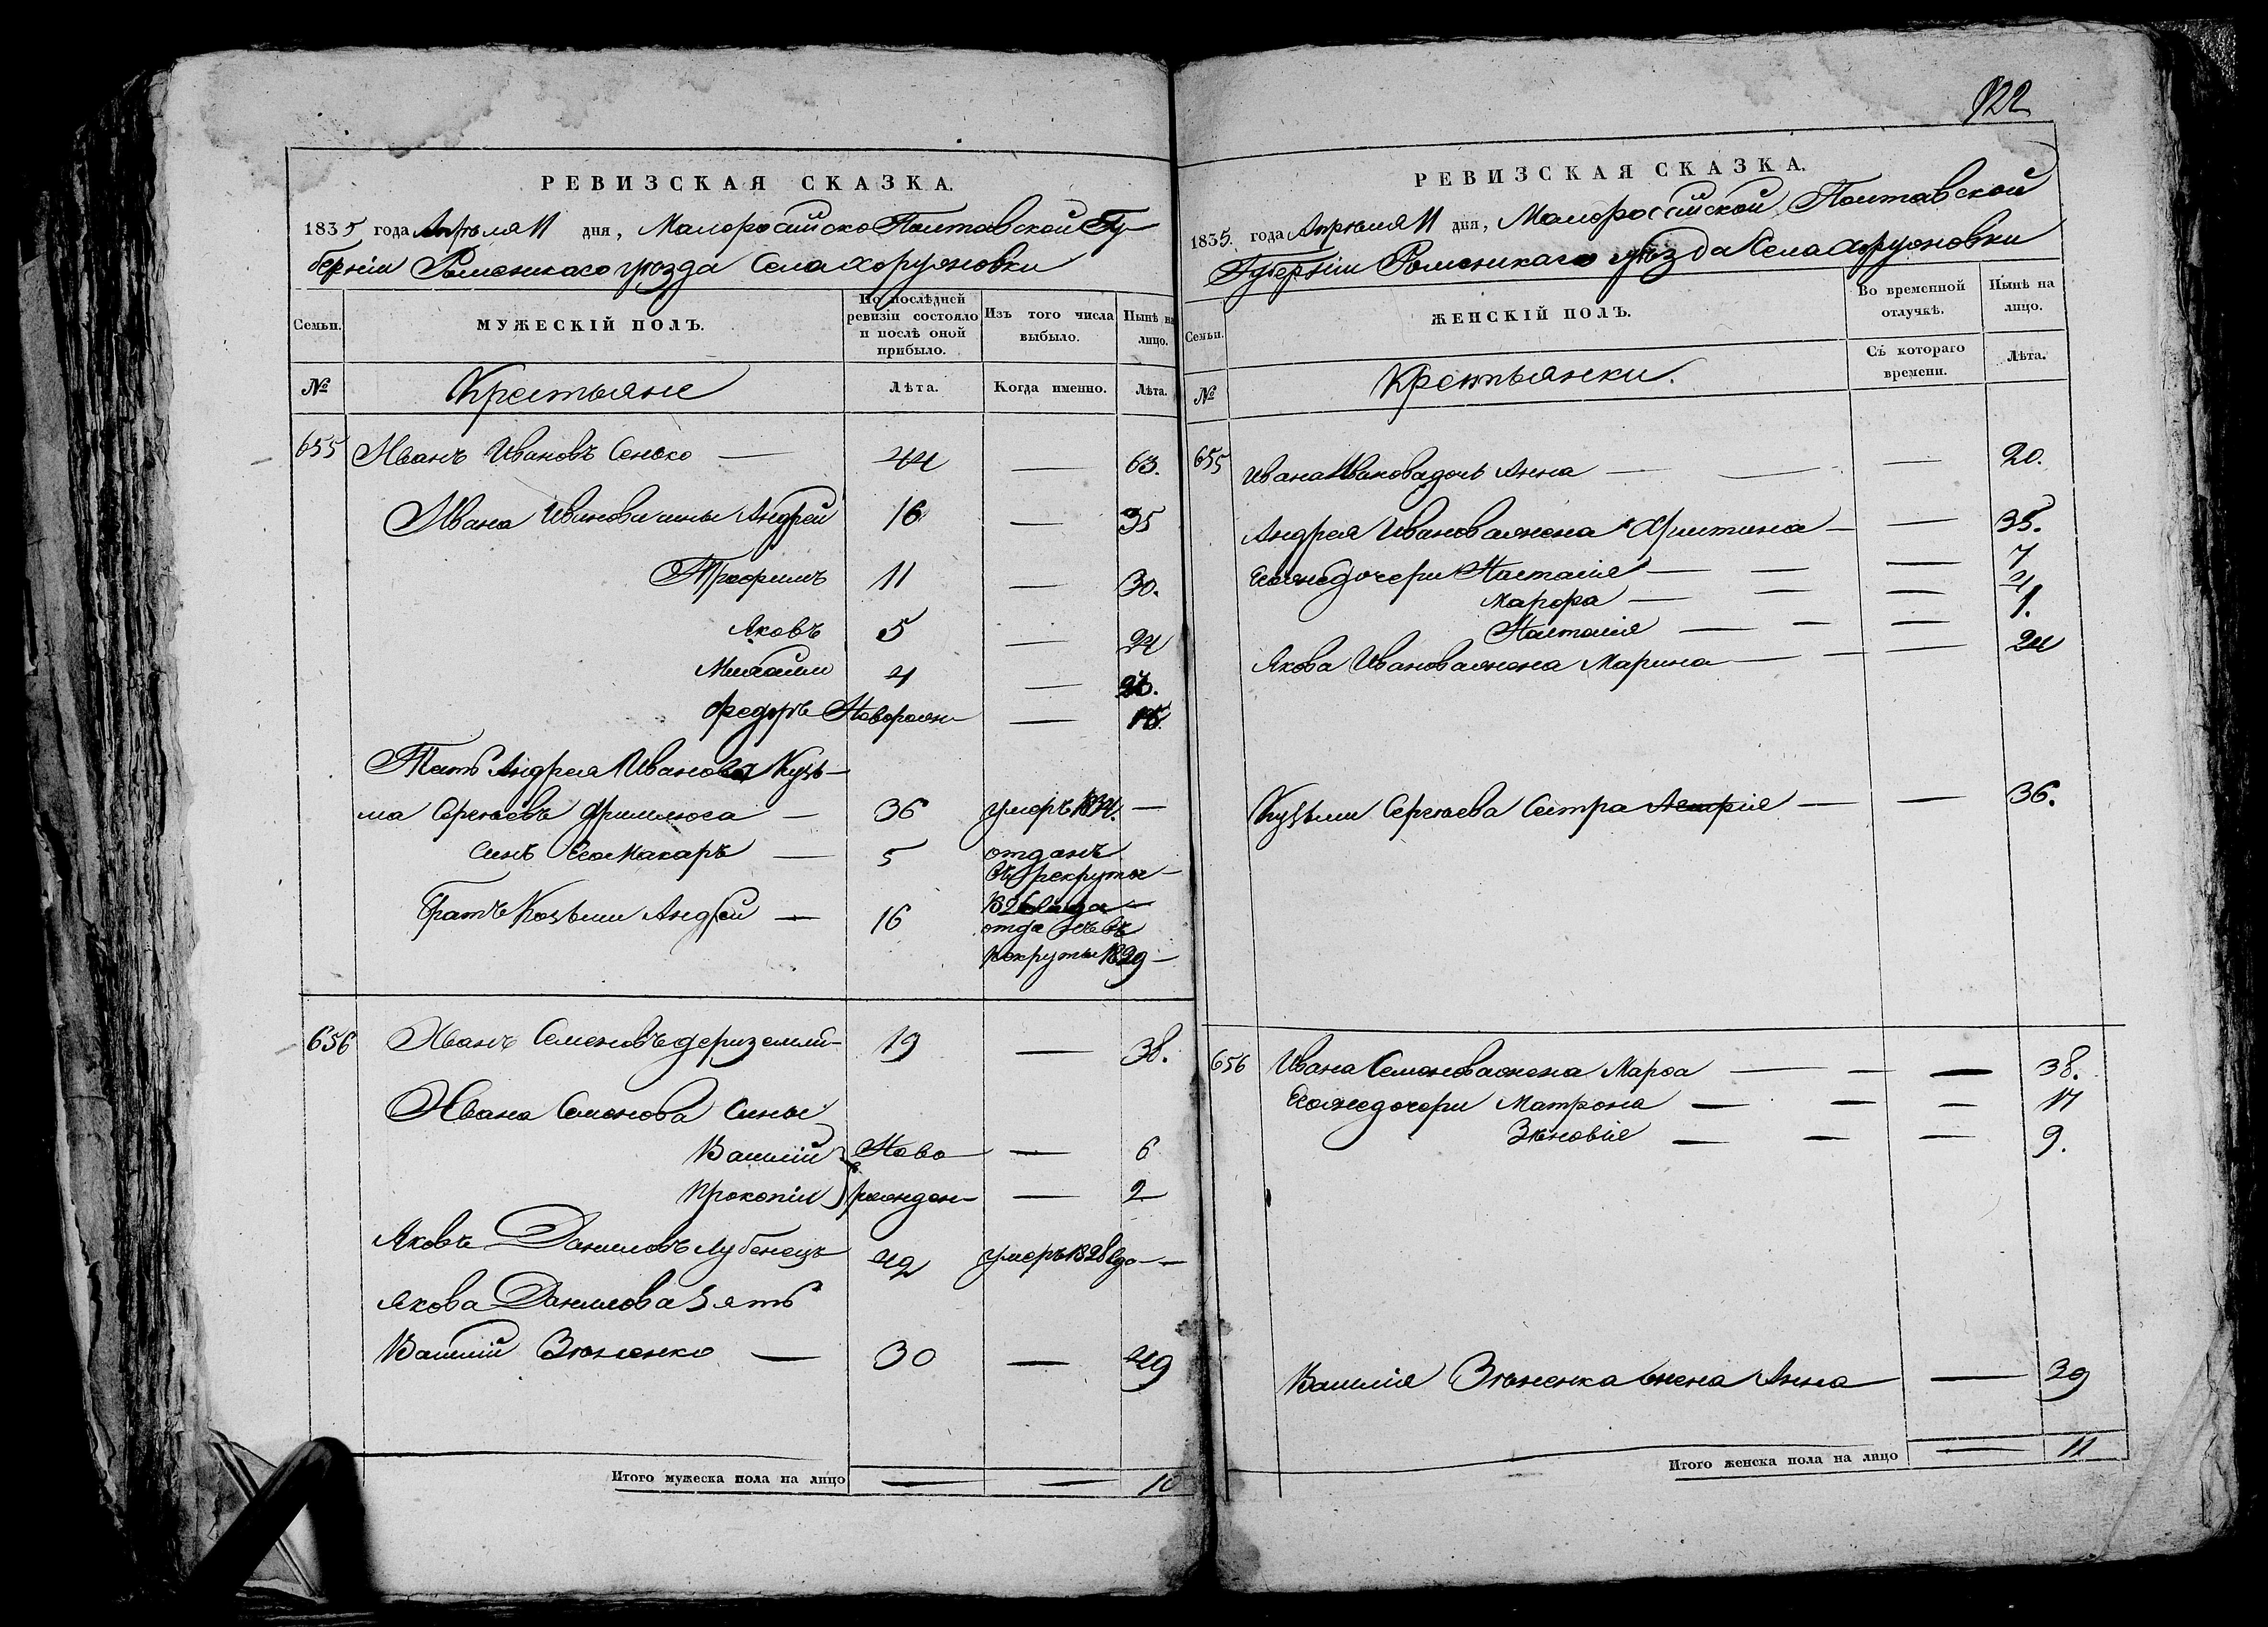 122
РЕВИЗСКАЯ СКАЗКА.
1835 года Апреля 11 дня, Малоросійско Полтавской Гу-
берніи Роменскаго уезда Села Хоружовки
Семьи.
МУЖЕСКІЙ ПОЛЪ.
По послѣдней ревизіи состояло и послѣ оной прибыло.
Изъ того числа выбыло.
Нынѣ на лицо.
№
Крестьяне
Лѣта.
Когда именно.
Лѣта.
655 Иванъ Ивановъ Сенько — 44 — 63.
Ивана Иванова сыны Андрей 16 — 35
Трофимъ 11 — 30.
Яковъ 5 — 24
Михаили 4 —
Федоръ Новорожн —
Тесть Андрея Иванова Кузь-
ма Сергѣевъ — 36 умеръ 1834. —
Синъ Его Макаръ — 5 отданъ
въ рекруты —
1826 года
Братъ Козьми Андрей — 16 отданъ въ
рекруты 1829 —
656 Иванъ Семеновъ деризємли- 19 — 38.
Ивана Семенова Сины
Василій Ново — 6
Прокопій рожден- — 2
Яковъ Даниловъ Лубенецъ 42 умеръ 1828 го — —
Якова Данилова Зять
Василій Зюненко — 30 — 49
Итого мужеска пола на лицо — — 10
РЕВИЗСКАЯ СКАЗКА.
1835. года Апреля 11 дня, Малоросійской Полтавской
Губерніи Роменскаго уезда Села Хоружовки
Семьи.
ЖЕНСКІЙ ПОЛЪ.
Во временной отлучкѣ.
Нынѣ на лицо.
№
Крестьянки.
Съ котораго времени.
Лѣта.
655 Ивана Иванова дочь Анна — — — 20.
Андрея Иванова жена Христина — — 35.
Его же дочери Настасія — — — 7
Марфа — — — 4
Настасія — — — 1.
Якова Иванова жена Марина — — — 24
Кузьми Сергѣева Сестра — — 36.
656 Ивана Семенова жена Марфа — — — 38.
Его же дочери Матрона — — — 17
Зѣновія — — — 9.
Василія Зюненка жена Анна — 39
Итого женска пола на лицо — 11